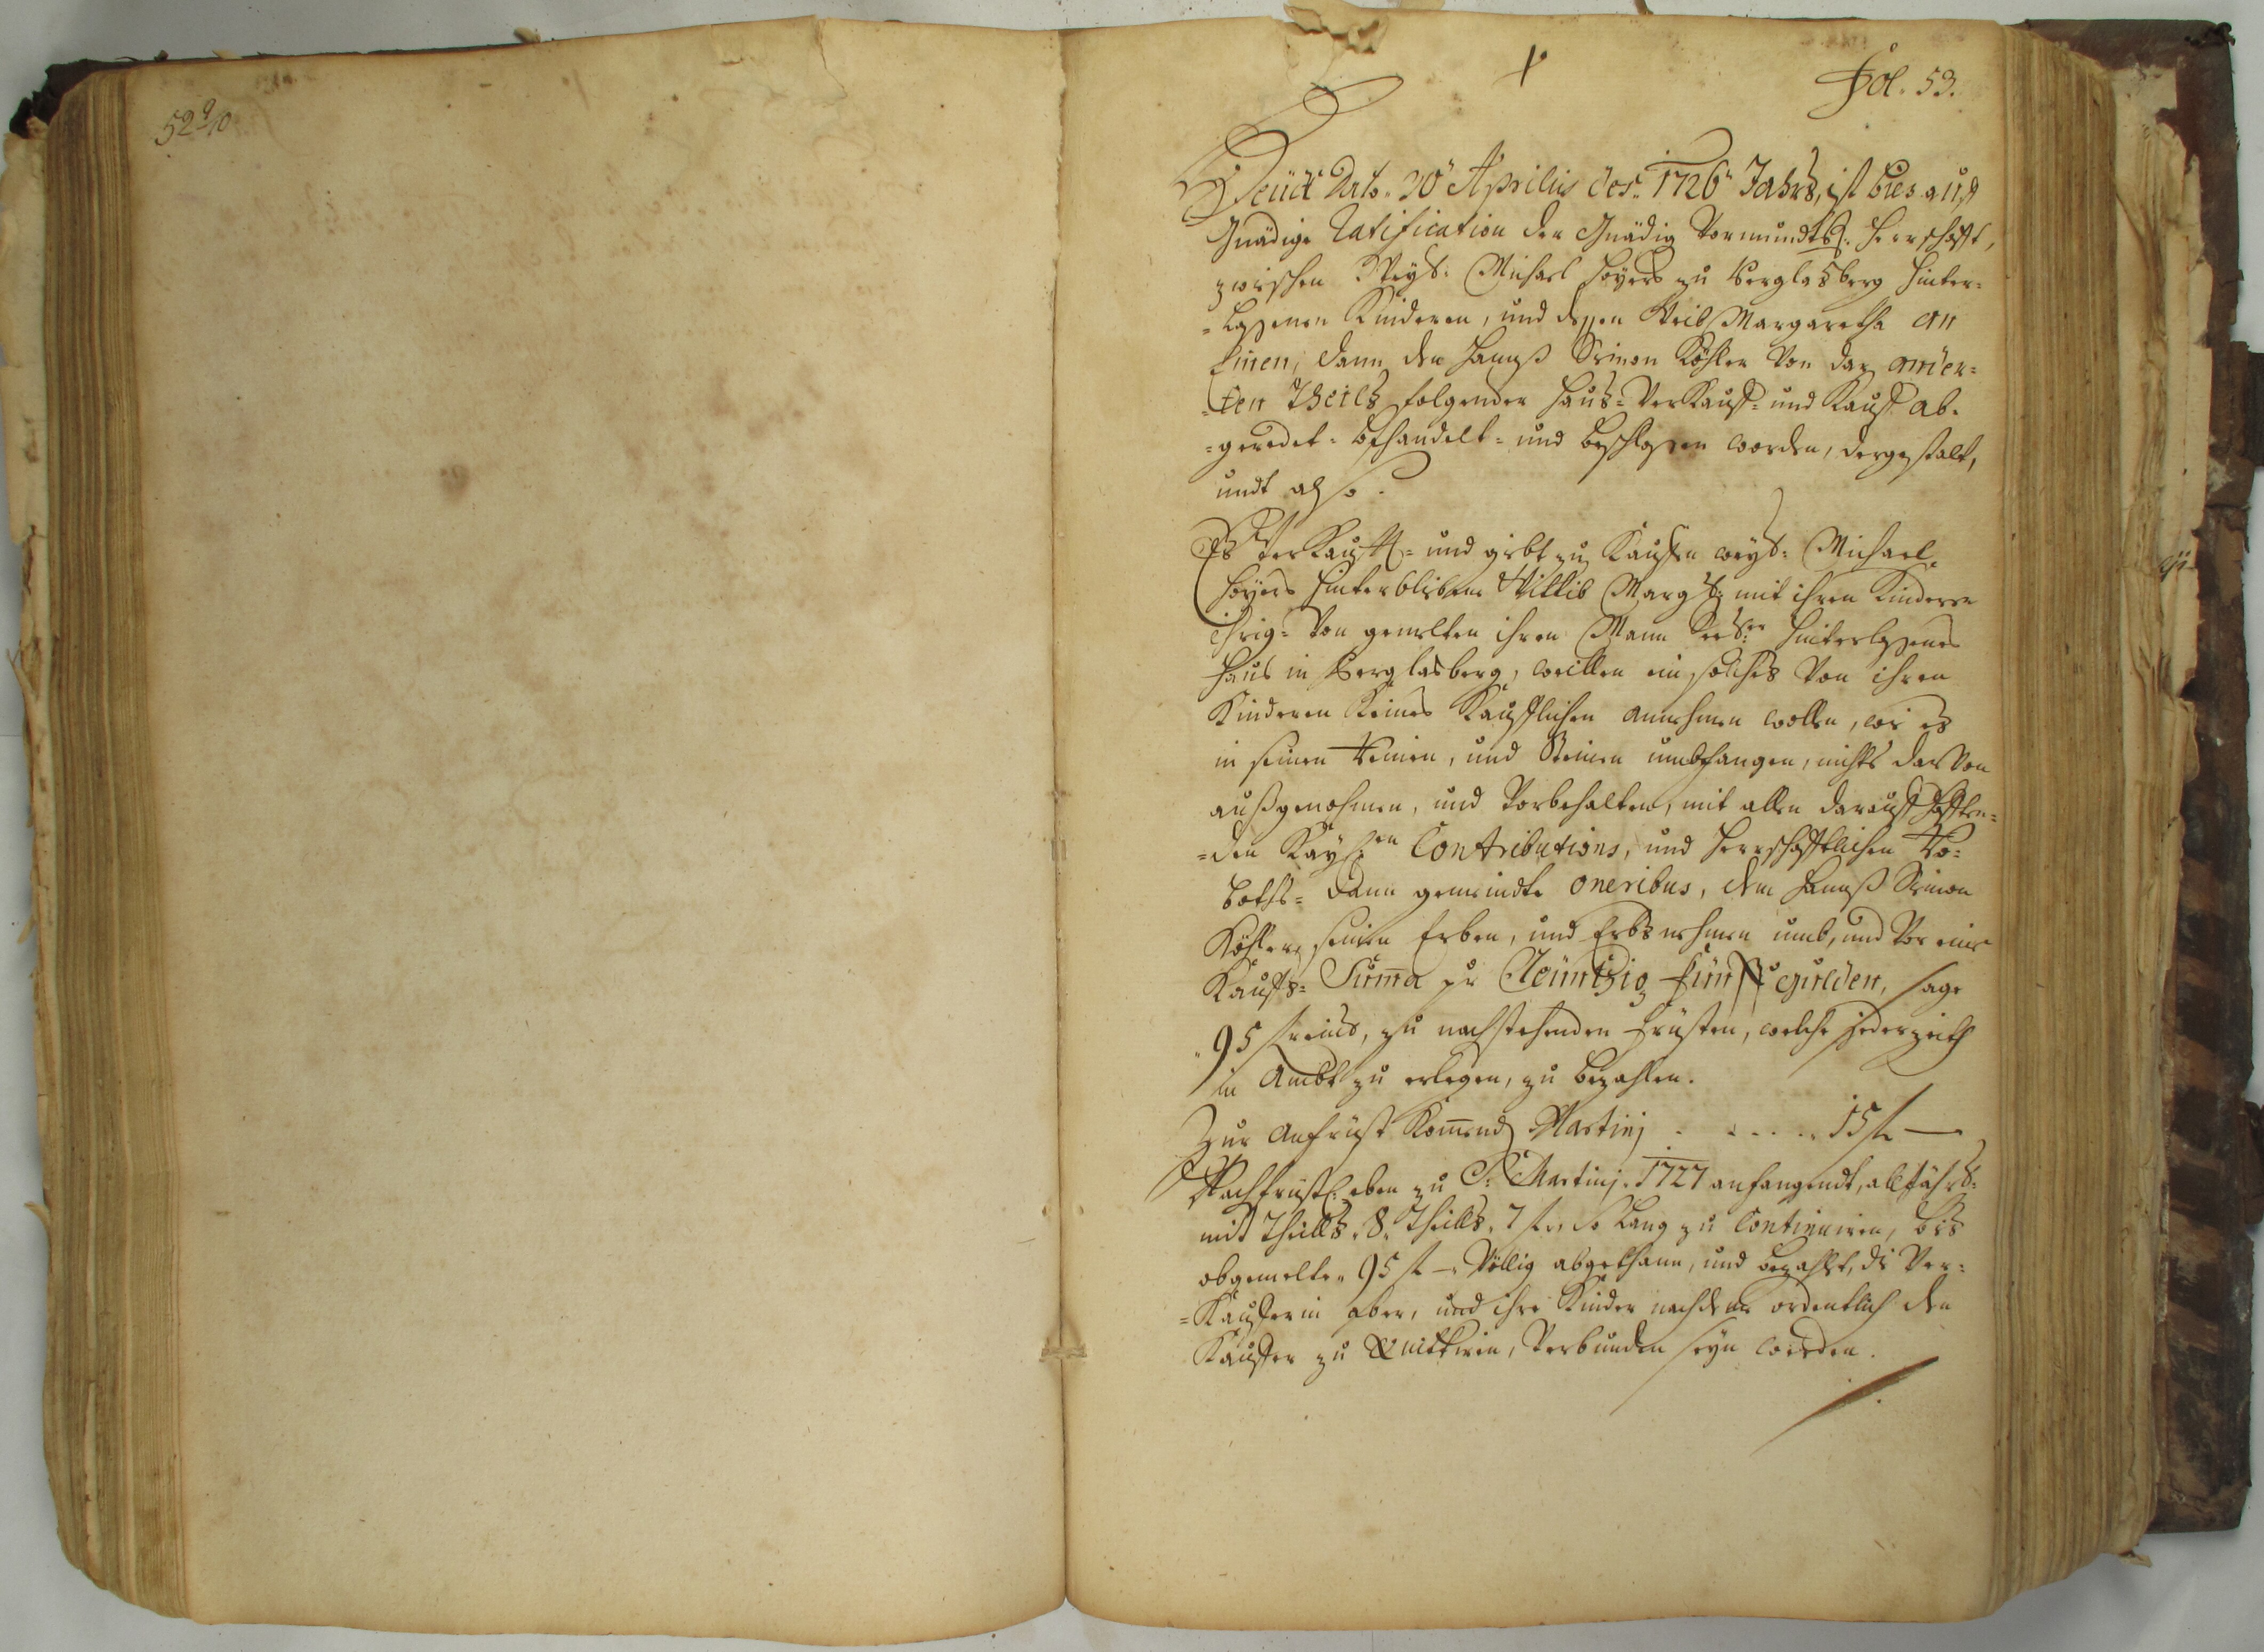 52 9/10
Fol. 53.
Heüt Dato 30 Aprilis des 1726 Jahrs, ist bies auf
Gnädige Ratification der Gnädig Vormundts: Herrschafft,
zwischen Weyl: Michael Hoyers zu Berglasberg hinter-
-laßenen Kinderen, und deßen Weib Margaretha an
Einen, dann den Hannß Simon Köhler Von dar ander-
-ten Theils folgender Hauß-Verkauf- und Kauf ab-
-geredet- behandelt- und beschloßen worden, dergestalt,
undt also.
Es Verkaufft- und gibt zu Kaufen weyl: Michael
Hoyers hinterblibene Wittib Marg: mit ihren Kinderen
ihrig- Von gemelten ihren Mann hinterlaßenes
Haus in Berglasberg, weillen ein solches Von ihren
Kinderen Keines Kaufflichen annehmen wollen, wie es
in seinen Reinen, und Steinen umbfangen, nichts darVon
außgenohmen, und Vorbehalten, mit allen darauf hafften-
-den Kayß:en Contributions, und Herrschafftlichen Ro-
boths- dann gemeindte oneribus, dem Hannß Simon
Köhler, seinen Erben, und Erbsnehmen umb, und Vor eine
Kaufs- Suma pr Neüntzig fünf Gulden, sage
95 f reins, zu nachstehenden Früsten, welche jederzeith
in Ambt zu erlegen, zu bezahlen.
Zur Anfrüst Komend Martinj . . . . . 15 f —
Nachfrüst: eben zu S: Martinj 1727 anfangendt, alljährl:
mit Theills 8 Theills 7 f, so lang zu Continuiren, bis
obgemelte 95 f — Völlig abgethann, und bezahlt, die Ver-
-Kauferin aber, und ihre Kinder nachdeme ordentlich den
Kaufer zu Quittiren, Verbunden seyn werden.